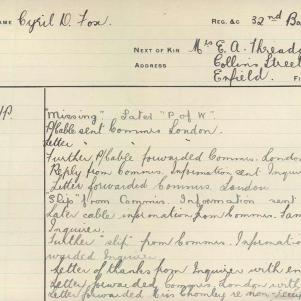 NAME Cyril D. Fox REG. &C 32nd Ba
NEXT OF KIN Mrs E. A. Threado
ADDRESS Collins Street
Enfield.
"Missing" Later "P of W".
P/Cable sent Commrs London.
Letter " " "
Further P/Cable forwarded Commrs. London
Reply from Commrs. Information sent Inquire
Letter forwarded Commrs. London
Slip from Commrs. Information sent
Later cable information from Commrs.
Inquirer.
Further "slip" from Commrs. Informatio
warded Inquirer
Letter of thanks from Inquirer with en
Letter forwarded Commrs, London with
Letter forwarded Miss Chomley re non-